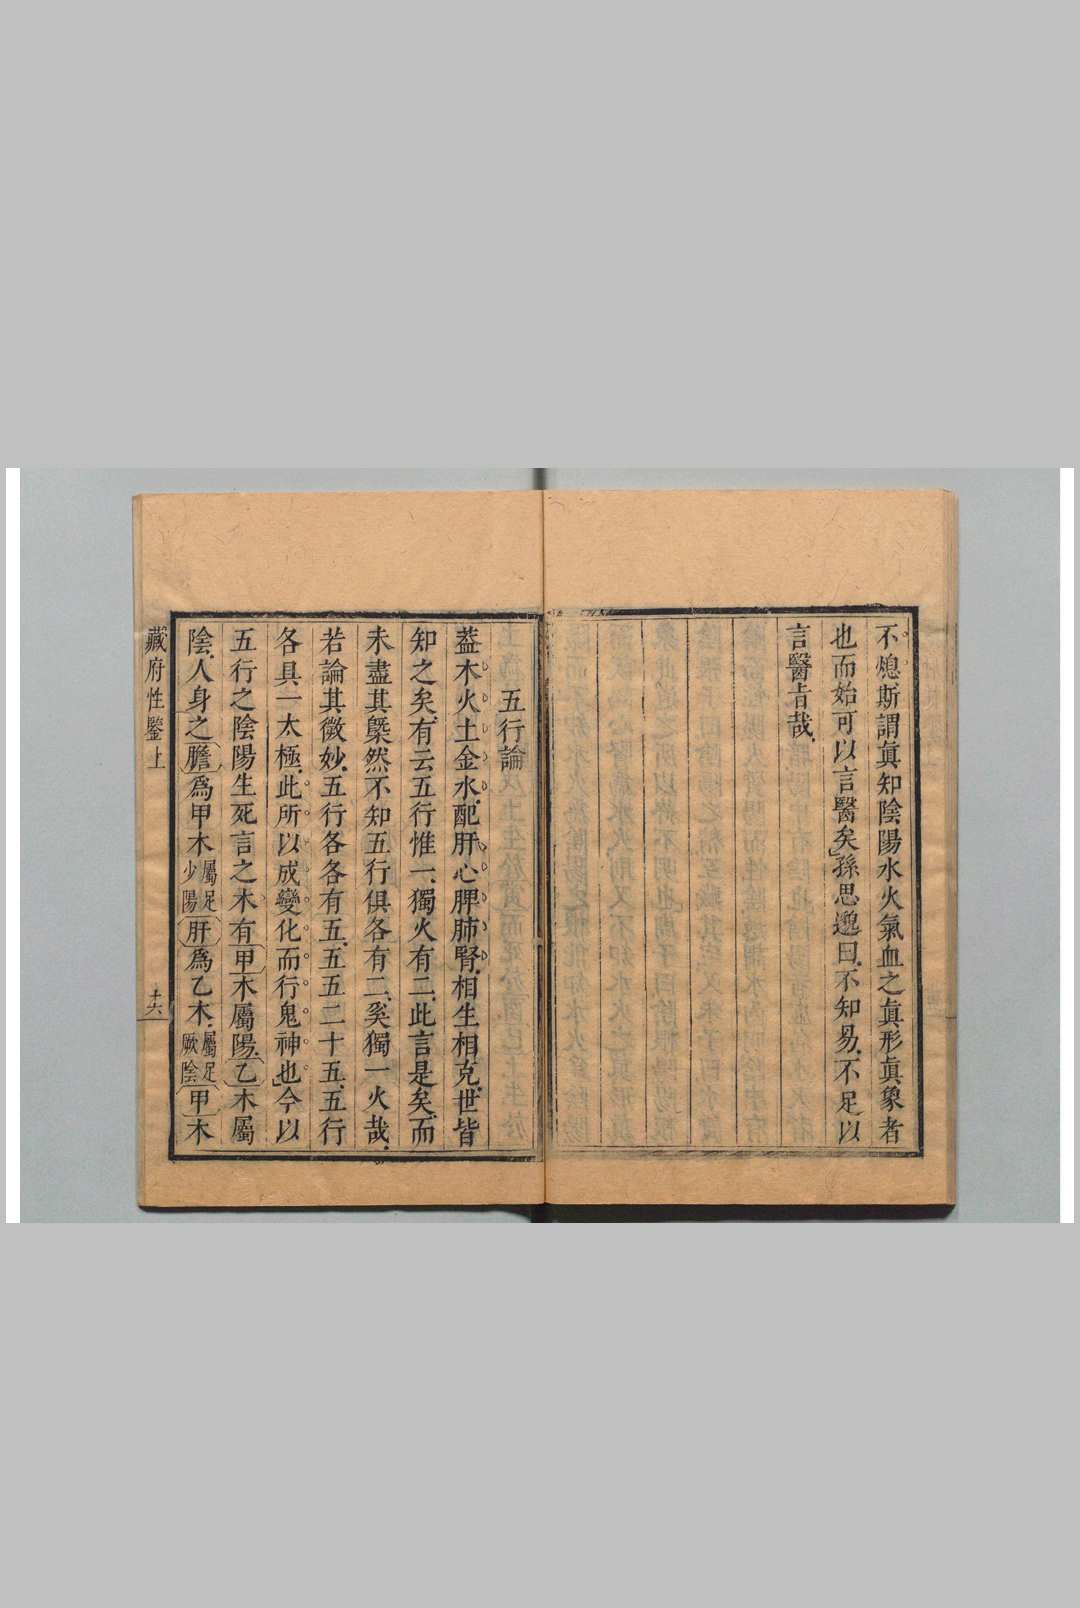 不熄斯謂眞知陰陽水火氣血之眞形眞象者
也而始可以言醫矣孫思邈曰不知易不足以
言醫旨哉
五行論
葢木火土金水配肝心脾肺腎相生相克世皆
知之矣有云五行惟一獨火有二此言是矣而
未盡其槩然不知五行俱各有二奚獨一火哉
若論其微妙五行各各有五五五二十五五行
各具一太極此所以成變化而行鬼神也今以
五行之陰陽生死言之木有甲木屬陽乙木屬
陰人身之膽爲甲木屬足少陽肝爲乙木屬足厥陰甲木
藏府性鑒上
十六